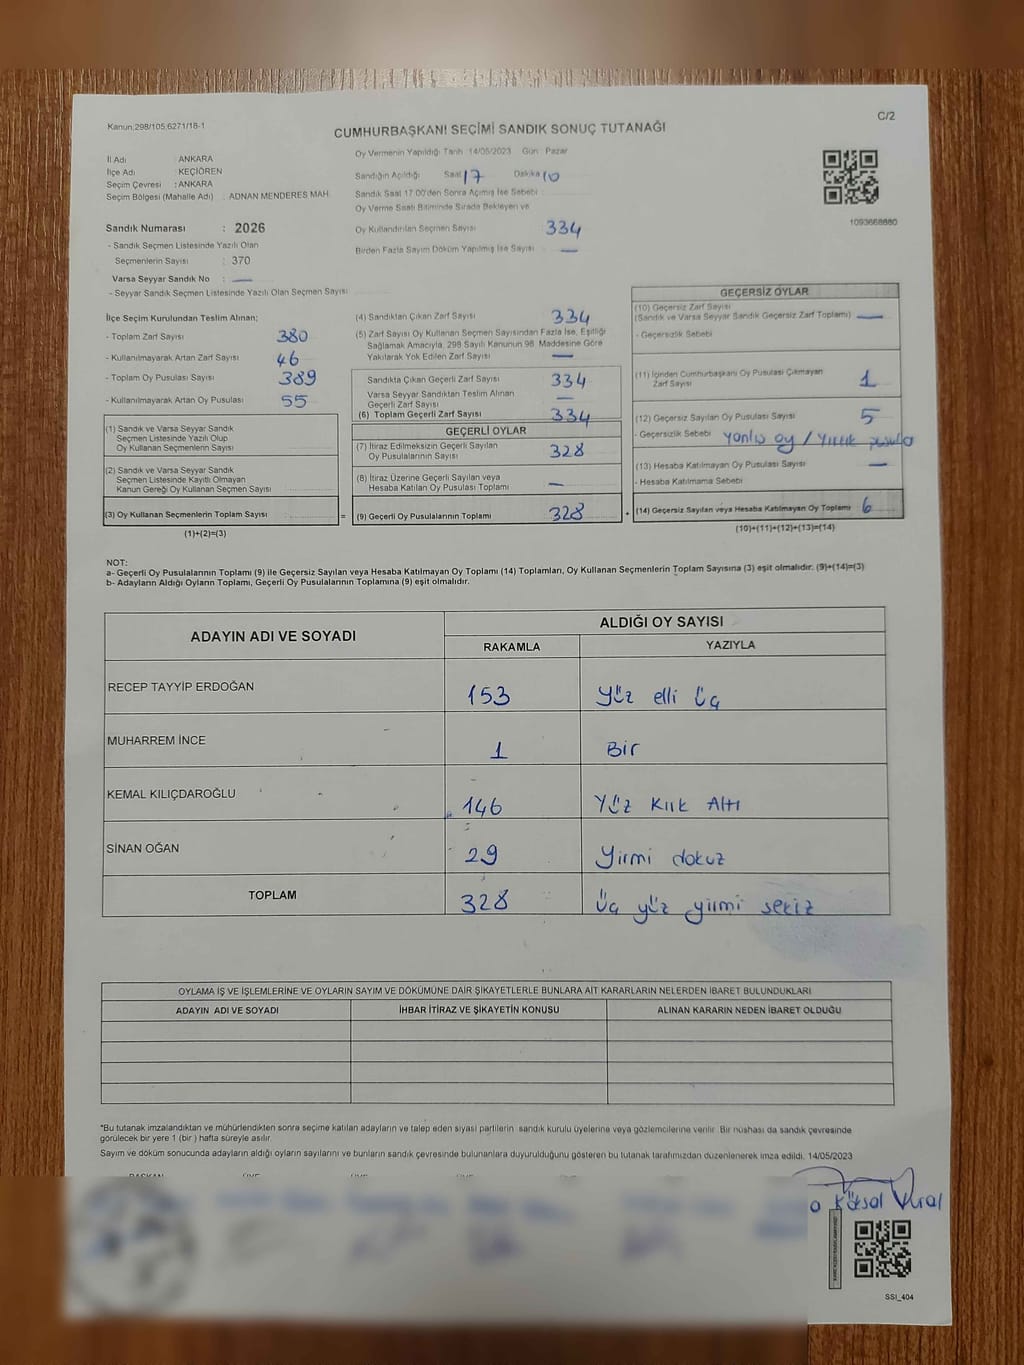 Kanun:298/105;6271/18-1
C/2
CUMHURBAŞKANI SEÇİMİ SANDIK SONUÇ TUTANAĞI
Oy Vermenin Yapıldığı Tarih :14/05/2023 Gün : Pazar
İl Adı : ANKARA
İlçe Adı : KEÇİÖREN
Seçim Çevresi : ANKARA
Seçim Bölgesi (Mahalle Adı) : ADNAN MENDERES MAH.
Sandığın Açıldığı Saat 17 Dakika 10
Sandık Saat 17:00'den Sonra Açılmış İse Sebebi :
Oy Verme Saati Bitiminde Sırada Bekleyen ve
Oy Kullandırılan Seçmen Sayısı 334
Birden Fazla Sayım Döküm Yapılmış İse Sayısı : —
1093668880
Sandık Numarası : 2026
- Sandık Seçmen Listesinde Yazılı Olan
Seçmenlerin Sayısı : 370
Varsa Seyyar Sandık No : —
- Seyyar Sandık Seçmen Listesinde Yazılı Olan Seçmen Sayısı:
İlçe Seçim Kurulundan Teslim Alınan;
- Toplam Zarf Sayısı 380
- Kullanılmayarak Artan Zarf Sayısı 46
- Toplam Oy Pusulası Sayısı 389
- Kullanılmayarak Artan Oy Pusulası 55
(1) Sandık ve Varsa Seyyar Sandık
Seçmen Listesinde Yazılı Olup
Oy Kullanan Seçmenlerin Sayısı
(2) Sandık ve Varsa Seyyar Sandık
Seçmen Listesinde Kayıtlı Olmayan
Kanun Gereği Oy Kullanan Seçmen Sayısı
(3) Oy Kullanan Seçmenlerin Toplam Sayısı
(1)+(2)=(3)
(4) Sandıktan Çıkan Zarf Sayısı 334
(5) Zarf Sayısı Oy Kullanan Seçmen Sayısından Fazla İse, Eşitliği
Sağlamak Amacıyla, 298 Sayılı Kanunun 98. Maddesine Göre
Yakılarak Yok Edilen Zarf Sayısı —
Sandıkta Çıkan Geçerli Zarf Sayısı 334
Varsa Seyyar Sandıktan Teslim Alınan
Geçerli Zarf Sayısı —
(6) Toplam Geçerli Zarf Sayısı 334
GEÇERLİ OYLAR
(7) İtiraz Edilmeksizin Geçerli Sayılan
Oy Pusulalarının Sayısı 328
(8) İtiraz Üzerine Geçerli Sayılan veya
Hesaba Katılan Oy Pusulası Toplamı —
= (9) Geçerli Oy Pusulalarının Toplamı 328
GEÇERSİZ OYLAR
(10) Geçersiz Zarf Sayısı
(Sandık ve Varsa Seyyar Sandık Geçersiz Zarf Toplamı) —
- Geçersizlik Sebebi
(11) İçinden Cumhurbaşkanı Oy Pusulası Çıkmayan
Zarf Sayısı 1
(12) Geçersiz Sayılan Oy Pusulası Sayısı 5
- Geçersizlik Sebebi yanlış oy / yırtık pusula
(13) Hesaba Katılmayan Oy Pusulası Sayısı —
- Hesaba Katılmama Sebebi
+ (14) Geçersiz Sayılan veya Hesaba Katılmayan Oy Toplamı 6
(10)+(11)+(12)+(13)=(14)
NOT:
a- Geçerli Oy Pusulalarının Toplamı (9) ile Geçersiz Sayılan veya Hesaba Katılmayan Oy Toplamı (14) Toplamları, Oy Kullanan Seçmenlerin Toplam Sayısına (3) eşit olmalıdır. (9)+(14)=(3)
b- Adayların Aldığı Oyların Toplamı, Geçerli Oy Pusulalarının Toplamına (9) eşit olmalıdır.
ADAYIN ADI VE SOYADI ALDIĞI OY SAYISI
RAKAMLA YAZIYLA
RECEP TAYYİP ERDOĞAN 153 Yüz elli üç
MUHARREM İNCE 1 Bir
KEMAL KILIÇDAROĞLU 146 Yüz Kırk Altı
SİNAN OĞAN 29 Yirmi dokuz
TOPLAM 328 Üç yüz yirmi sekiz
OYLAMA İŞ VE İŞLEMLERİNE VE OYLARIN SAYIM VE DÖKÜMÜNE DAİR ŞİKAYETLERLE BUNLARA AİT KARARLARIN NELERDEN İBARET BULUNDUKLARI
ADAYIN ADI VE SOYADI İHBAR İTİRAZ VE ŞİKAYETİN KONUSU ALINAN KARARIN NEDEN İBARET OLDUĞU
*Bu tutanak imzalandıktan ve mühürlendikten sonra seçime katılan adayların ve talep eden siyasi partilerin sandık kurulu üyelerine veya gözlemcilerine verilir. Bir nüshası da sandık çevresinde
görülecek bir yere 1 (bir ) hafta süreyle asılır.
Sayım ve döküm sonucunda adayların aldığı oyların sayılarını ve bunların sandık çevresinde bulunanlara duyurulduğunu gösteren bu tutanak tarafımızdan düzenlenerek imza edildi. 14/05/2023
BAŞKAN ÜYE ÜYE ÜYE ÜYE
Köksal Vural
SSI_404